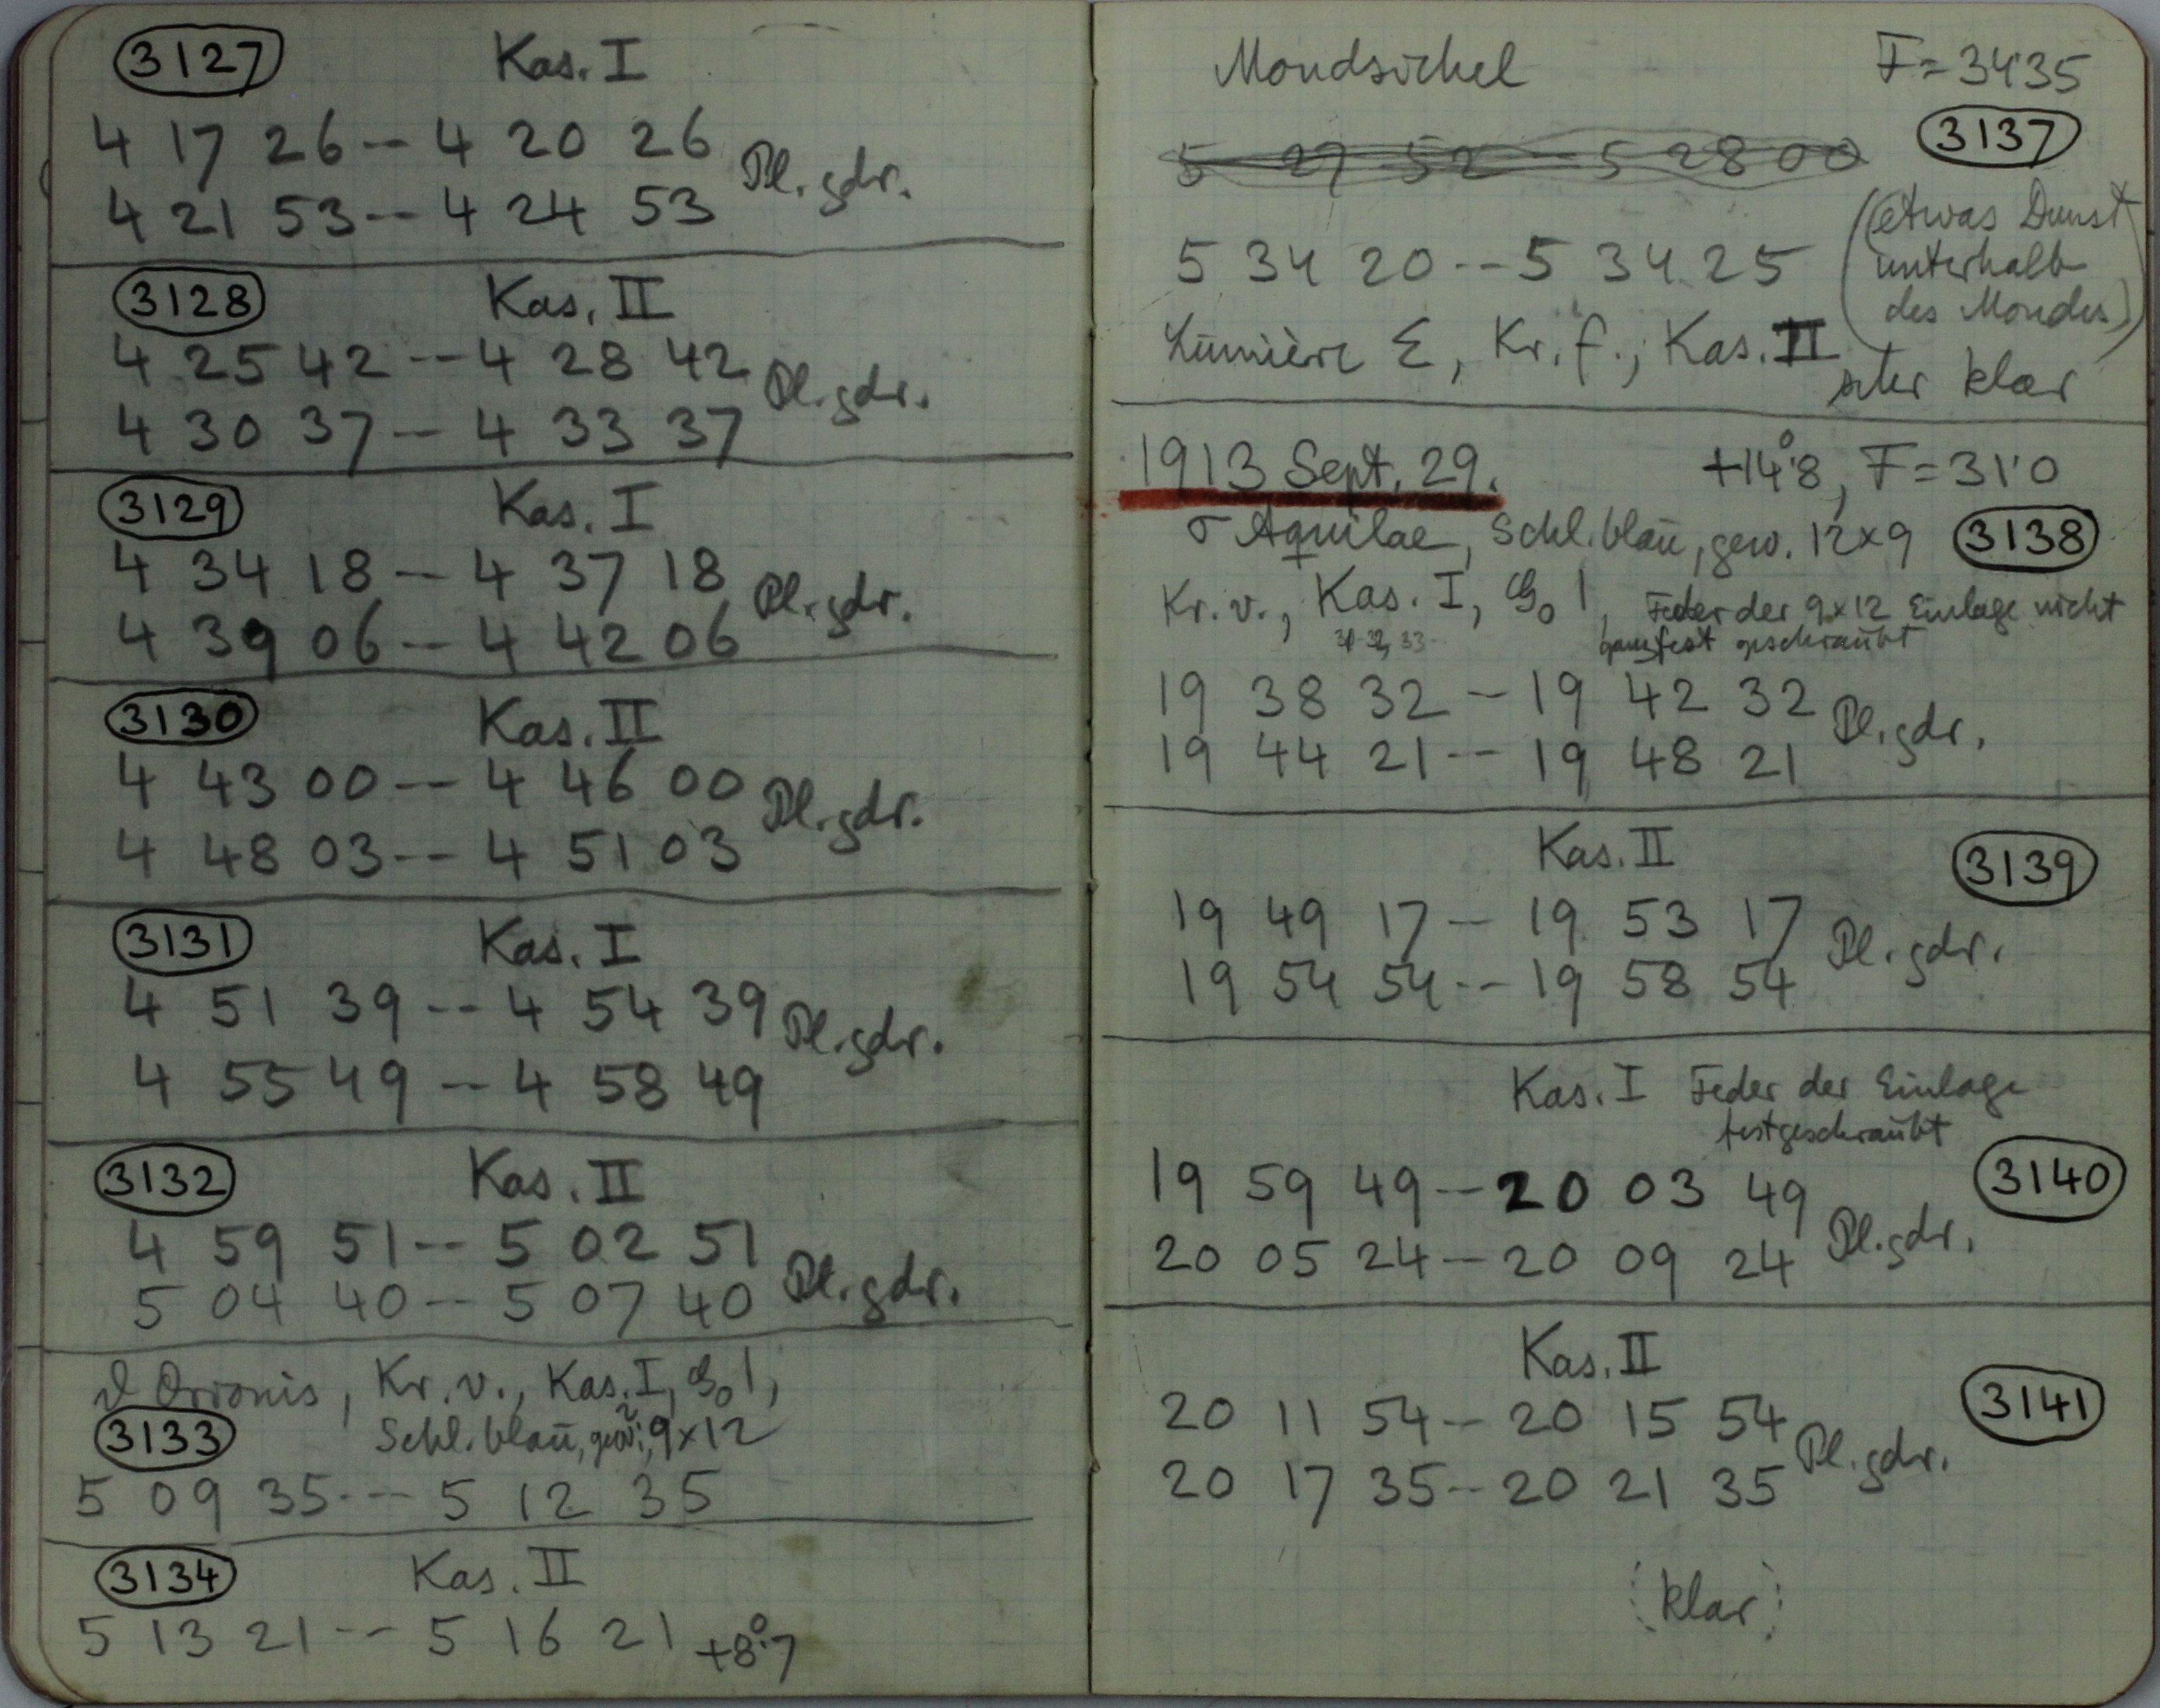 3127 Kas. I
4 17 26 -- 4 20 26 Pl. gdr.
4 21 53 -- 4 24 53
3128 Kas. II
4 25 42 -- 4 28 42 Pl. gdr.
4 30 37 -- 4 33 37
3129 Kas. I
4 34 18 -- 4 37 18 Pl. gdr.
4 39 06 -- 4 42 06
3130 Kas. II
4 43 00 -- 4 46 00 Pl. gdr.
4 48 03 -- 4 51 03
3131 Kas. I
4 51 39 -- 4 54 39 Pl. gdr.
4 55 49 -- 4 58 49
3132 Kas. II
4 59 51 -- 5 02 51 Pl. gdr.
5 04 40 -- 5 07 40
Orionis, Kr. v., Kas. I,
3133 Schl. blau, gew. 9x12
5 09 35 --- 5 12 35
3134 Kas. II
5 13 21 -- 5 16 21 +8°.7
Mondsichel F = 34'35
5 27 52 -- 5 28 00 3137
(etwas Dunst
5 34 20 -- 5 34 25 unterhalb
des Mondes)
Lumière Σ, Kr. f., Kas. II
klar
1913 Sept. 29. +14°.8, F = 31'0
σ Aquilae, Schl. blau, gew. 12x9 3138
Kr. v., Kas. I, Feder der 9x12 Einlage nicht
ganz fest geschraubt
19 38 32 -- 19 42 32 Pl. gdr.
19 44 21 -- 19 48 21
Kas. II 3139
19 49 17 -- 19 53 17 Pl. gdr.
19 54 54 -- 19 58 54
Kas. I Feder der Einlage
festgeschraubt
19 59 49 -- 20 03 49 3140
20 05 24 -- 20 09 24 Pl. gdr.
Kas. II
20 11 54 -- 20 15 54 3141
20 17 35 -- 20 21 35 Pl. gdr.
(klar)